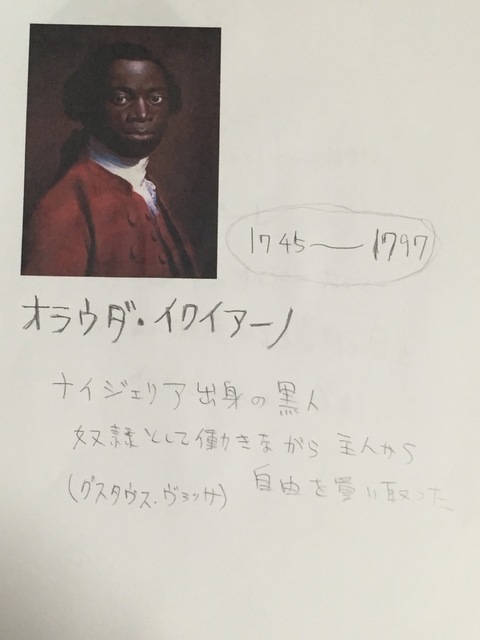 1745―1797
オラウダ・イクイアーノ
ナイジェリア出身の黒人
奴隷として働きながら 主人から
(グスタヴス・ヴァッサ) 自由を買い取った